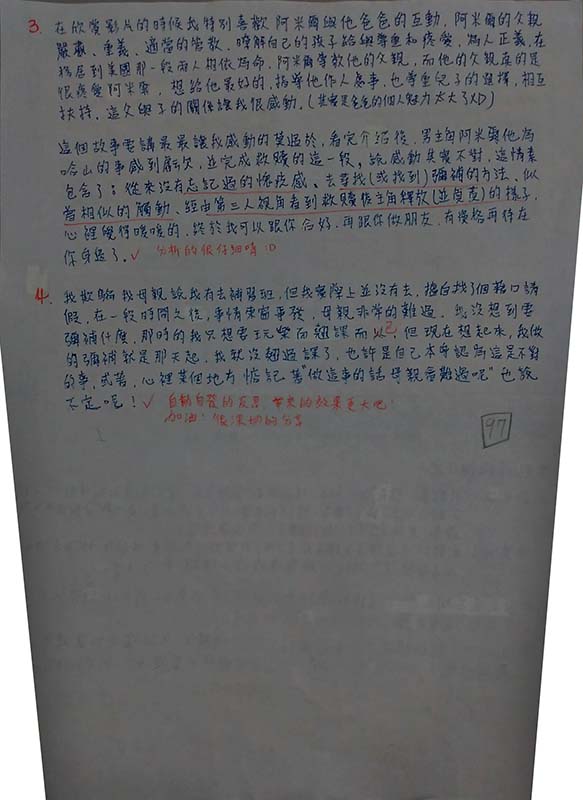 3. 在欣賞影片的時候我特別喜歡阿米爾與他爸爸的互動,阿米爾的父親
嚴肅、重義、適當的管教、瞭解自己的孩子給與尊重和疼愛,為人正義,在
移居到美國那一段兩人相依為命,阿米爾尊敬他的父親,而他的父親真的是
很疼愛阿米爾,想給他最好的,指導他作人處事,也尊重兒子的選擇,相互
扶持,這父與子的關係讓我很感動。(其實是爸爸的個人魅力太大了XD)
這個故事要講最最讓我感動的莫過於,看完介紹後,男主角阿米爾他為
哈山的事感到虧欠,並完成救贖的這一段,說感動其實不對,這情素
包含了:從來沒有忘記過的愧疚感、去尋找(或找到)彌補的方法、似
曾相似的觸動、經由第三人視角看到救贖後主角釋放(並負責)的樣子,
心裡覺得暖暖的,終於我可以跟你合好,再跟你做朋友,有資格再待在
你身邊了。✓ 分析的很仔細唷:D
4. 我欺騙我母親說我有去補習班,但我實際上並沒有去,擅自找了個藉口請
假,在一段時間之後,事情東窗事發,母親非常的難過。我沒想到要
彌補什麼,那時的我只想要玩樂而翹課而已,但現在想起來,我做
的彌補就是那天起,我就沒翹過課了,也許是自己本身認為這是不對
的事,或者,心裡某個地方惦記著"做這事的話母親會難過呢"也說
不定呢!✓ 自動自發的反思,帶來的效果更大吧!
加油!很深切的分享
97